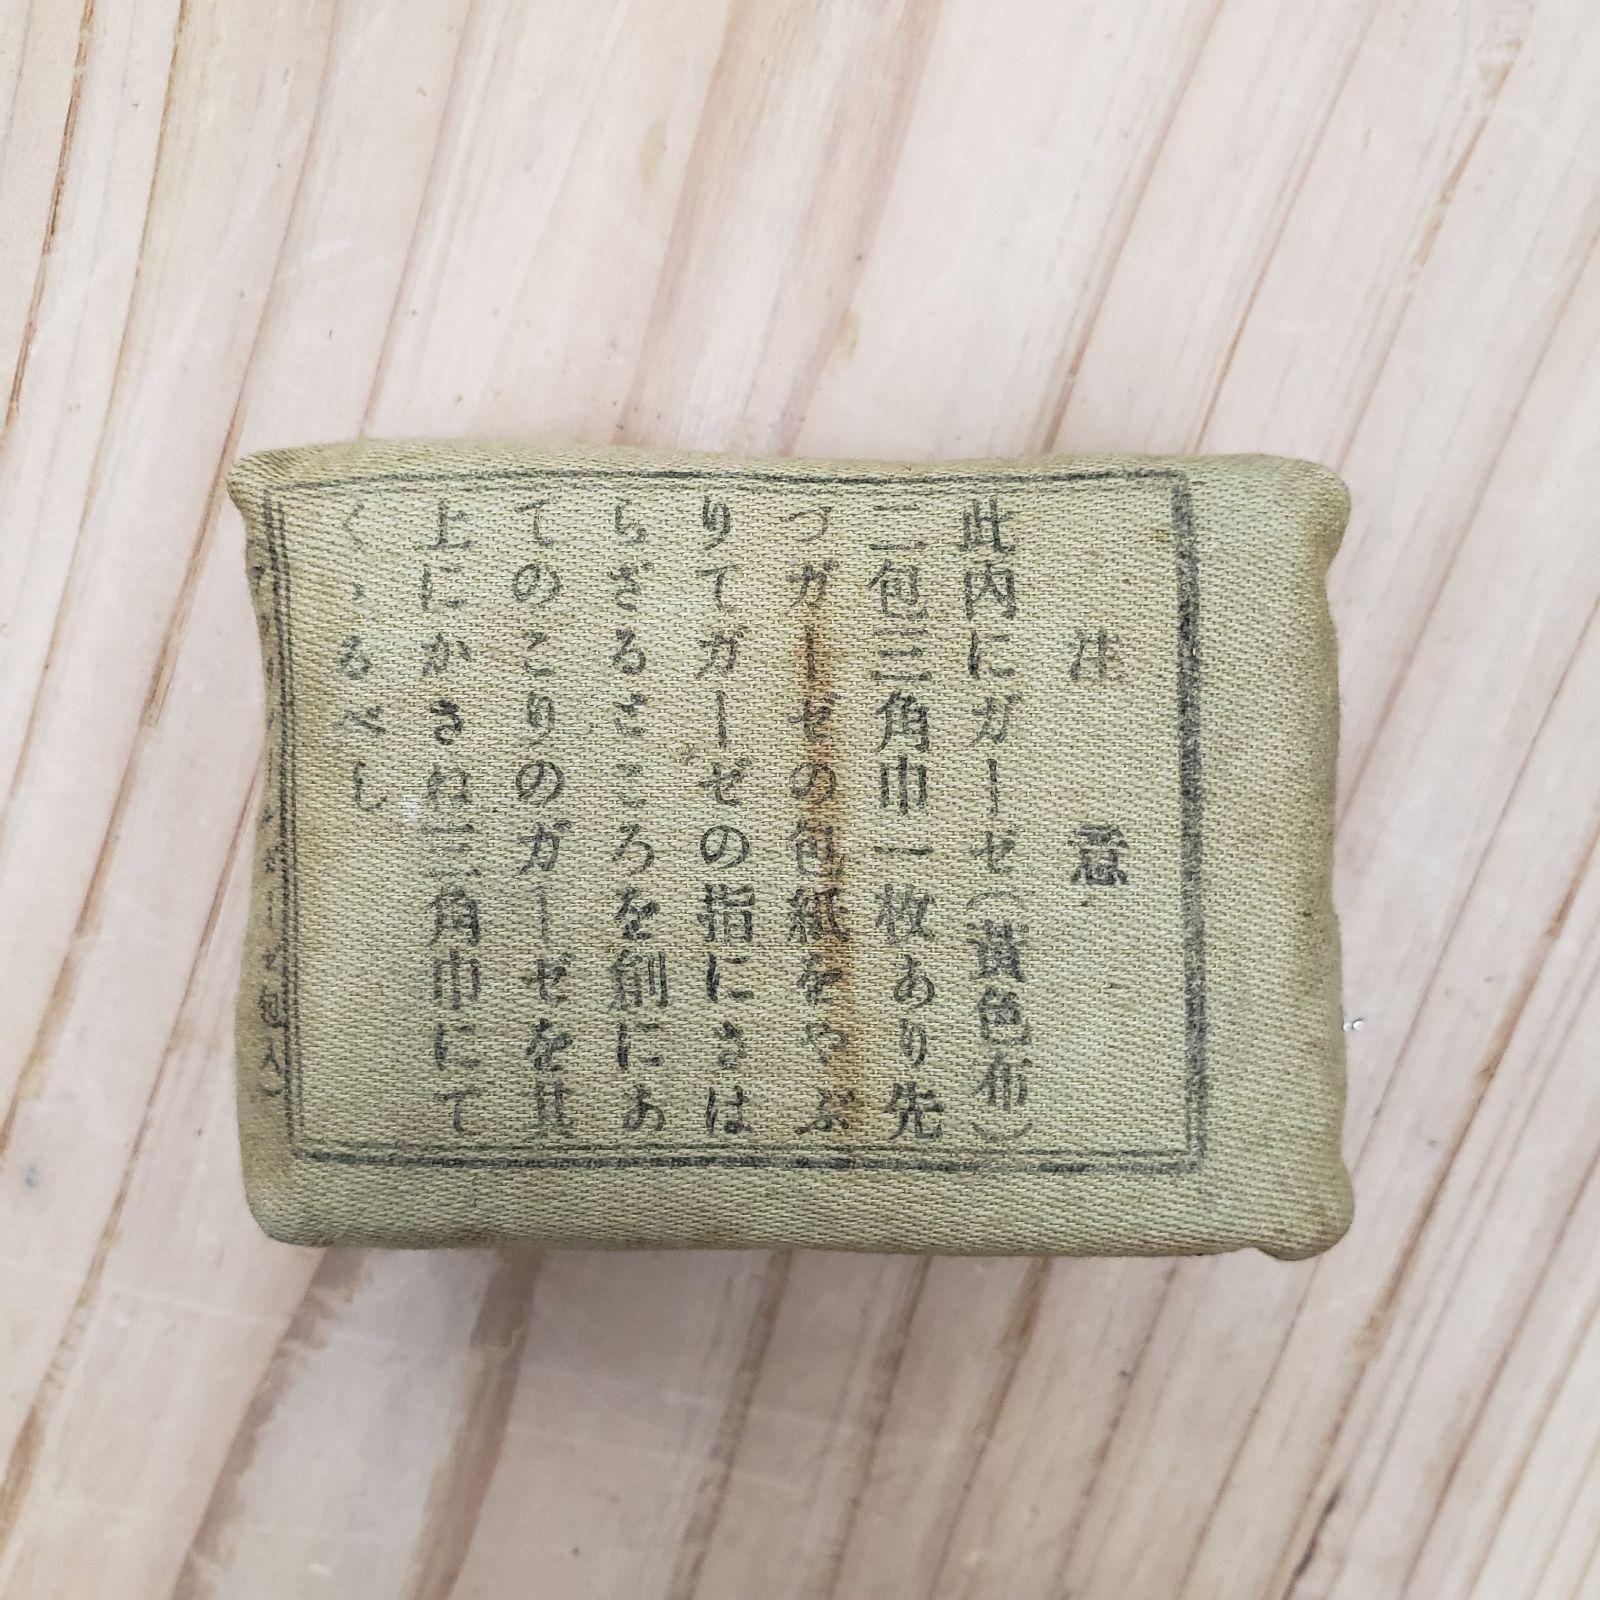 注意
此内にガーゼ(黄色布)
二包三角巾一枚あり先
づガーゼの包紙をやぶ
りてガーゼの指にさは
らざるところを創にあ
てのこりのガーゼを其
上にかさね三角巾にて
くゝるべし